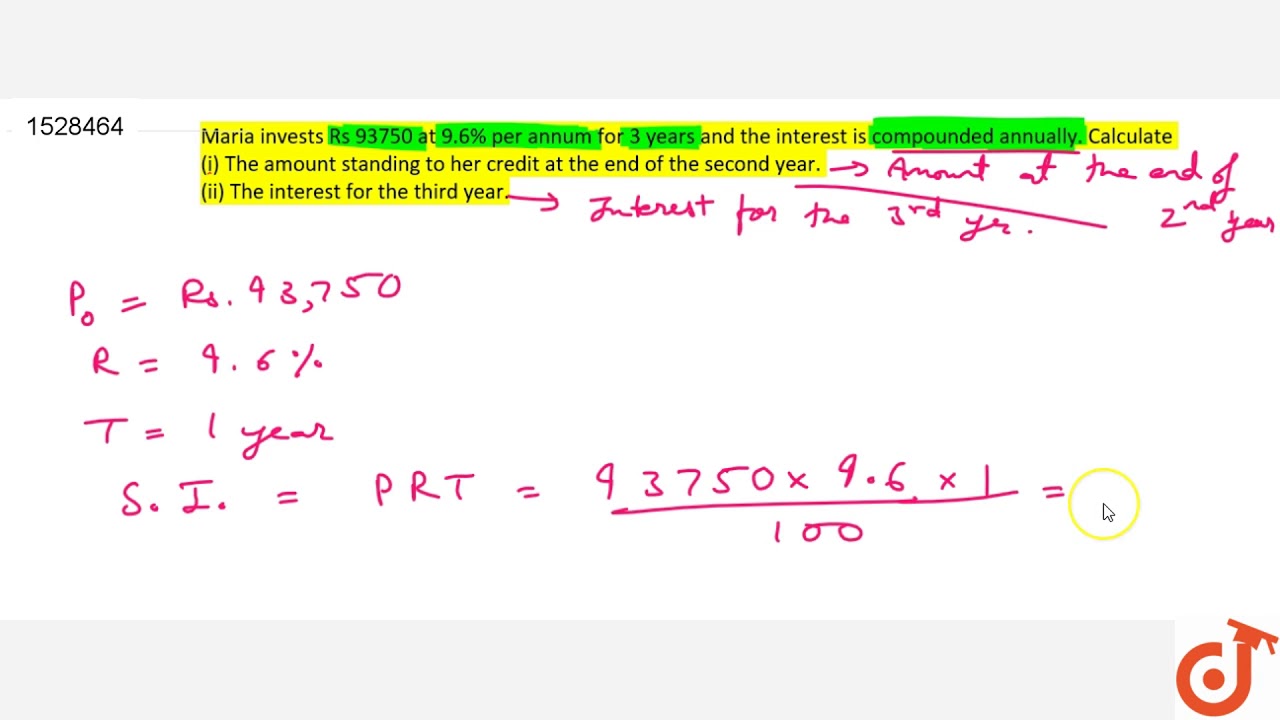 1528464
Maria invests Rs 93750 at 9.6% per annum for 3 years and the interest is compounded annually. Calculate
(i) The amount standing to her credit at the end of the second year. → Amount at the end of
2nd year
(ii) The interest for the third year. → Interest for the 3rd yr.
P₀ = Rs. 93,750
R = 9.6%
T = 1 year
S.I. = PRT = 93750 × 9.6 × 1 =
100